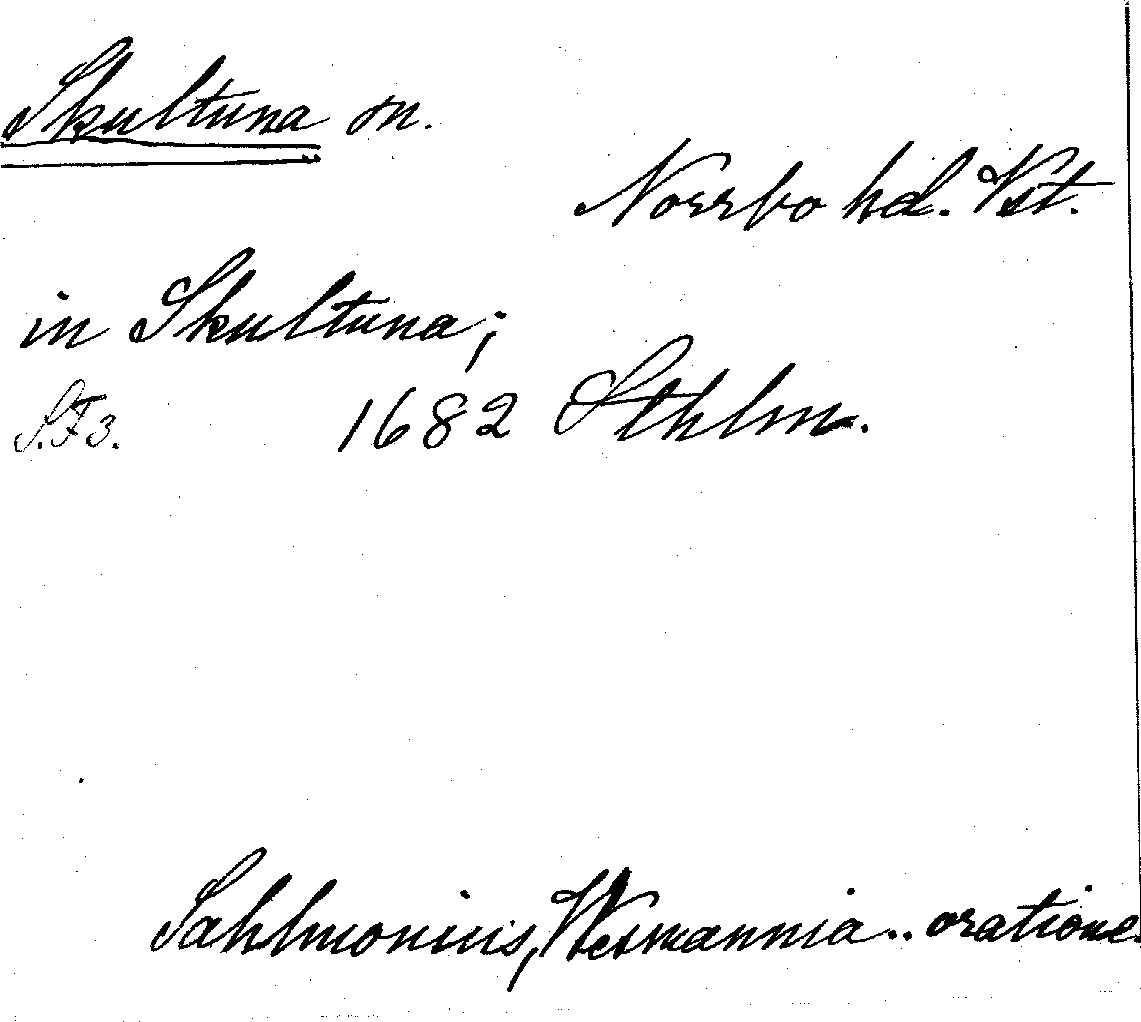 Skultuna sn.
Norrbo hd. Vst.
in Skultuna;
S.F3. 1682 Sthlm.
Sahlmonius, Wesmannia .. oratione